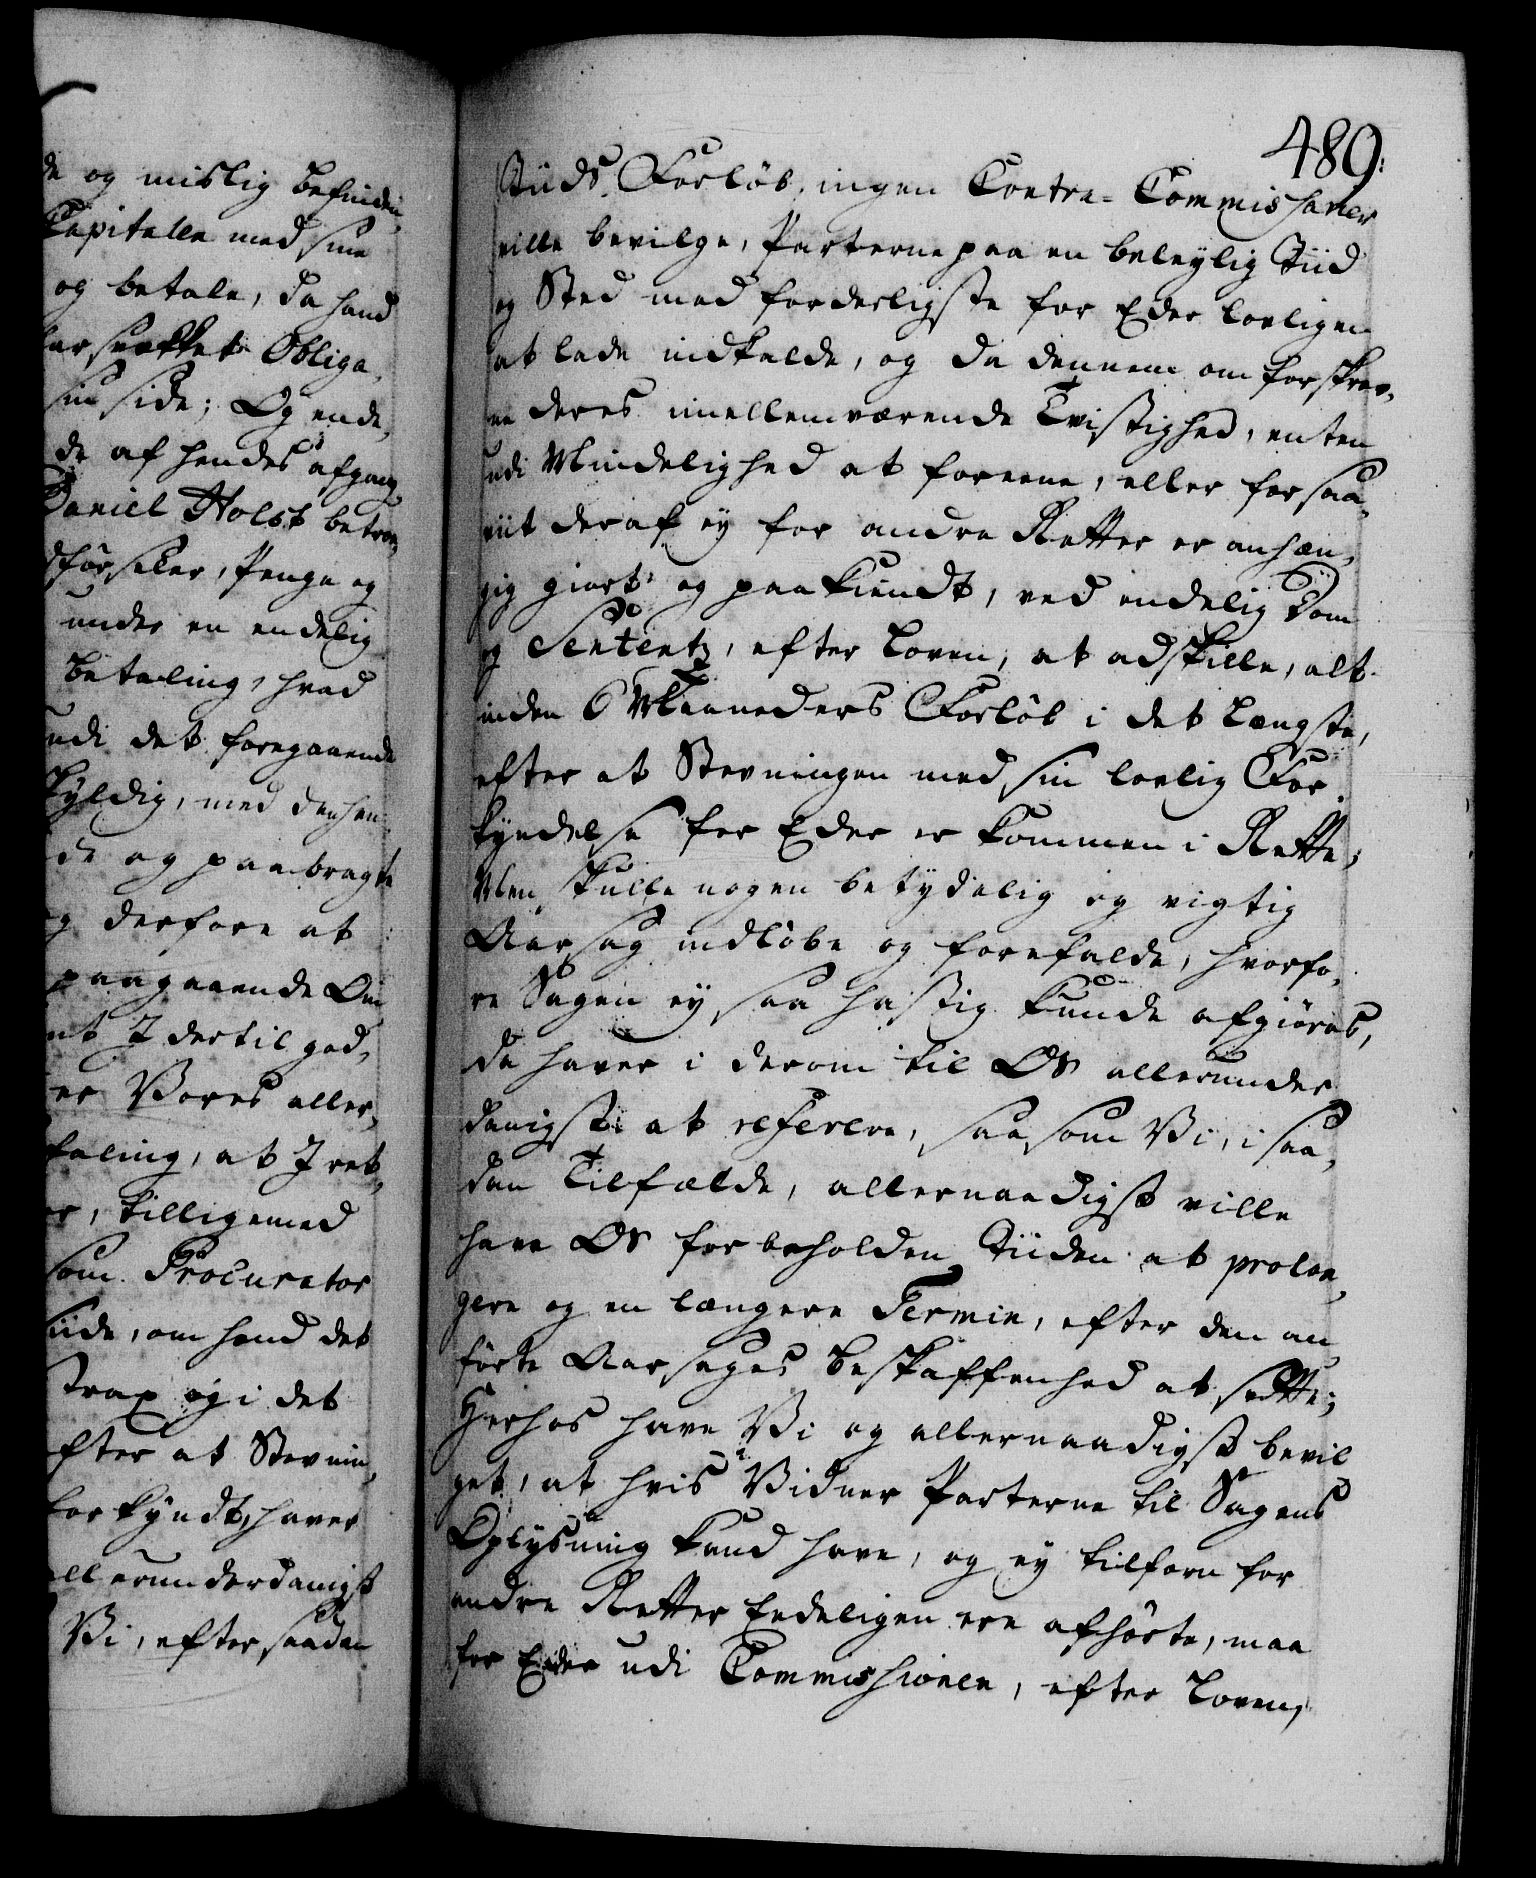 de og mislig befinden,
Capitalen med sine
og betale, da hand
har svækket Obliga,
sin side; Og ende,
de af hendes afgang
Daniel Holst betroe,
dførseler, Penge og
under en endelig
betaling, hvad
udi det foregaaende
skyldig, med den hen,
de og paabragte
og derfore at
paagaaende Om,
at I dertil god,
er Vores aller,
faling, at I ret,
er, tilligemed
som Procurator
siide, om hand det
strax og i det
efter at Stevnin,
forkyndt, haver
allerunderdanigst
Vi, efter saadan
489.
Tiids Forløb, ingen Contra-Commissarier
ville bevilge, Parterne paa en beleylig Tiid
og Sted med forderligste for Eder lovligen
at lade indkalde, og da dennem om forskrev,
ne deres imellemværende Tvistighed, enten
udi Mindelighed at foreene, eller for saa,
viit deraf ey for andre Retter er anhæn,
gig giort og paakiendt, ved endelig Dom
og Sententz, efter Loven, at adskille, alt
inden 6 Maaneders Forløb i det længste,
efter at Stevningen med sin lovlig For,
kyndelse for Eder er kommen i Rette;
Men skulle nogen betydelig og vigtig
Aarsag indløbe og forefalde, hvorfo,
re Sagen ey saa hastig kunde afgiøres,
da haver i derom til Os allerunder,
danigst at referere, saasom Vi, i saa,
dan Tilfælde, allernaadigst ville
have Os forbeholden Tiiden at prolon,
gere og en længere Termin, efter den an,
førte Aarsages beskaffenhed at sætte;
Herhos have Vi og allernaadigst bevil
get, at hvis Vidner Parterne til Sagens
Oplysning kand have, og ey tilforn for
andre Retter Endeligen ere afhørte, maa
for Eder udi Commissionen, efter Loven,